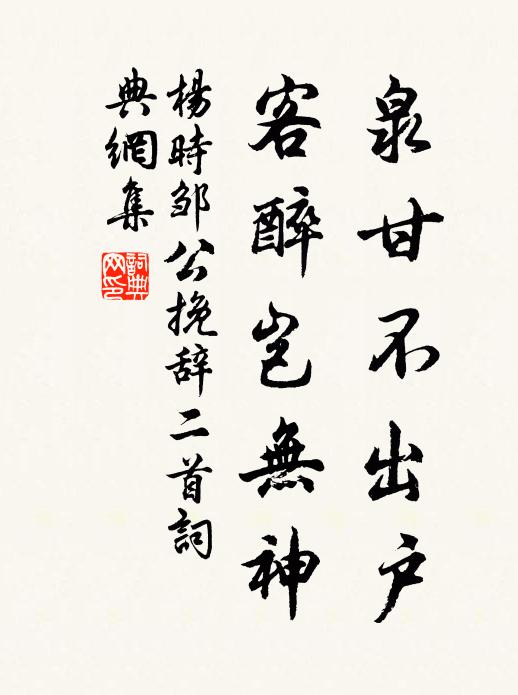 泉甘不出户
客醉岂無神
楊時邹公挽辞二首詞
典網集
詞典
网印